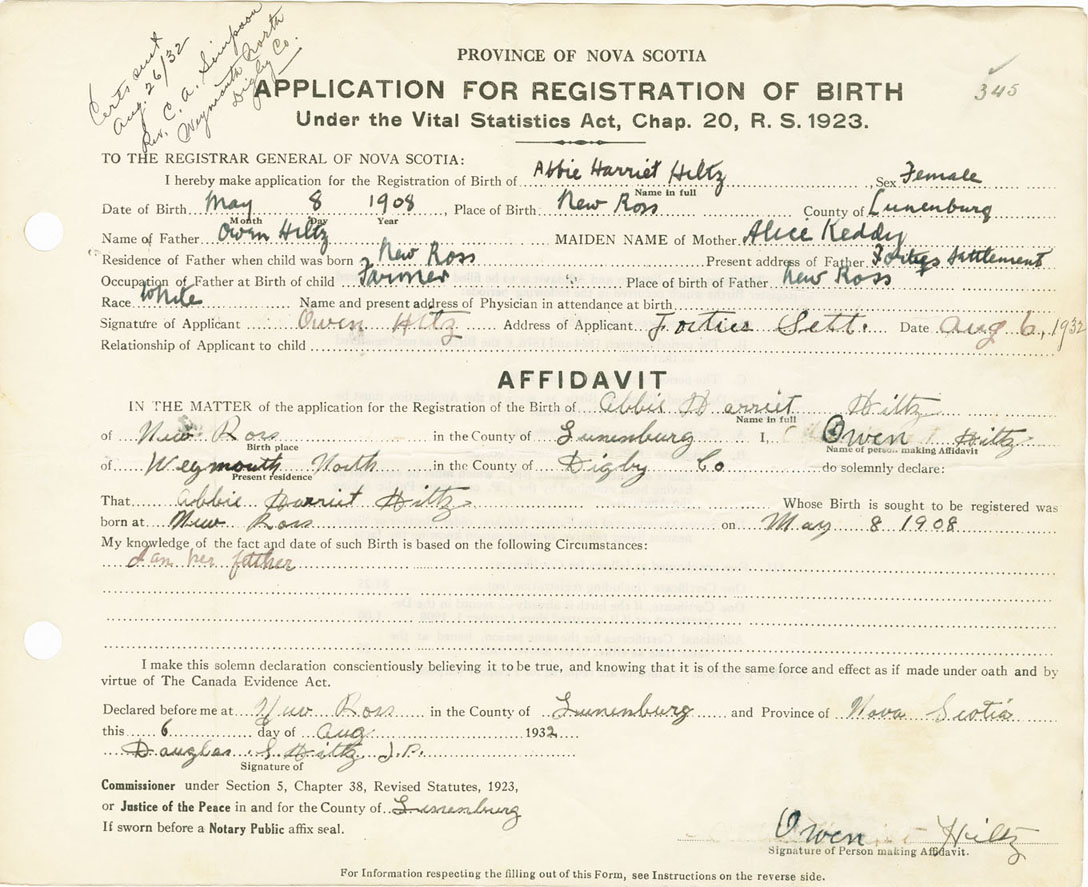 Certs sent
Aug. 26/32
Rev. C. A. Simpson
Weymouth North
Digby Co.
345
PROVINCE OF NOVA SCOTIA
APPLICATION FOR REGISTRATION OF BIRTH
Under the Vital Statistics Act, Chap. 20, R. S. 1923.
TO THE REGISTRAR GENERAL OF NOVA SCOTIA:
I hereby make application for the Registration of Birth of Abbie Harriet Hiltz, Sex Female
Name in full
Date of Birth May 8 1908, Place of Birth New Ross County of Lunenburg
Month Day Year
Name of Father Owen Hiltz MAIDEN NAME of Mother Alice Keddy
Residence of Father when child was born New Ross Present address of Father Forties Settlement
Occupation of Father at Birth of child Farmer Place of birth of Father New Ross
Race White Name and present address of Physician in attendance at birth
Signature of Applicant Owen Hltz Address of Applicant Forties Sett. Date Aug 6, 1932
Relationship of Applicant to child
AFFIDAVIT
IN THE MATTER of the application for the Registration of the Birth of Abbie Harriet Hiltz
Name in full
of New Ross in the County of Lunenburg I, Owen Hiltz
Birth place Name of person making Affidavit
of Weymouth North in the County of Digby Co do solemnly declare:
Present residence
That Abbie Harriet Hiltz Whose Birth is sought to be registered was
born at New Ross on May 8 1908
My knowledge of the fact and date of such Birth is based on the following Circumstances:
I am her father
I make this solemn declaration conscientiously believing it to be true, and knowing that it is of the same force and effect as if made under oath and by
virtue of The Canada Evidence Act.
Declared before me at New Ross in the County of Lunenburg and Province of Nova Scotia
this 6 day of Aug 1932
Douglas S Hiltz J.P.
Signature of
Commissioner under Section 5, Chapter 38, Revised Statutes, 1923,
or Justice of the Peace in and for the County of Lunenburg
If sworn before a Notary Public affix seal.
Owen Hiltz
Signature of Person making Affidavit.
For Information respecting the filling out of this Form, see Instructions on the reverse side.